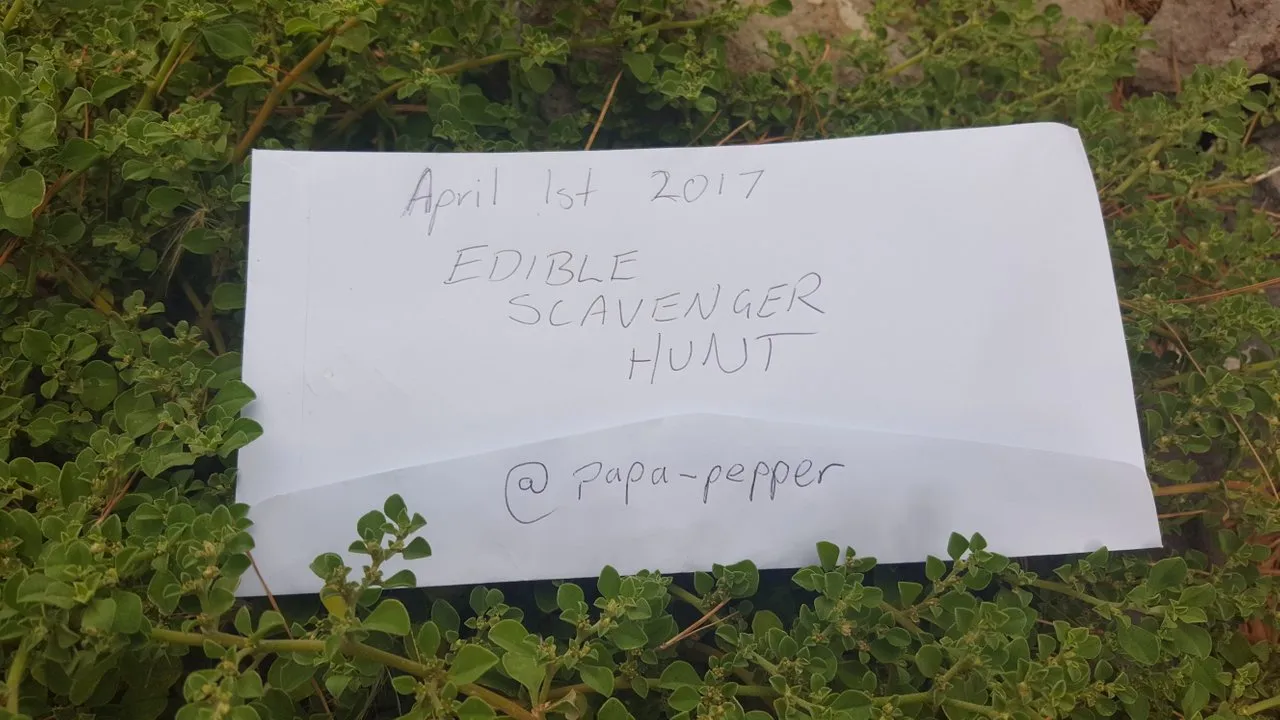 April 1st 2017
EDIBLE
SCAVENGER
HUNT
@ papa-pepper